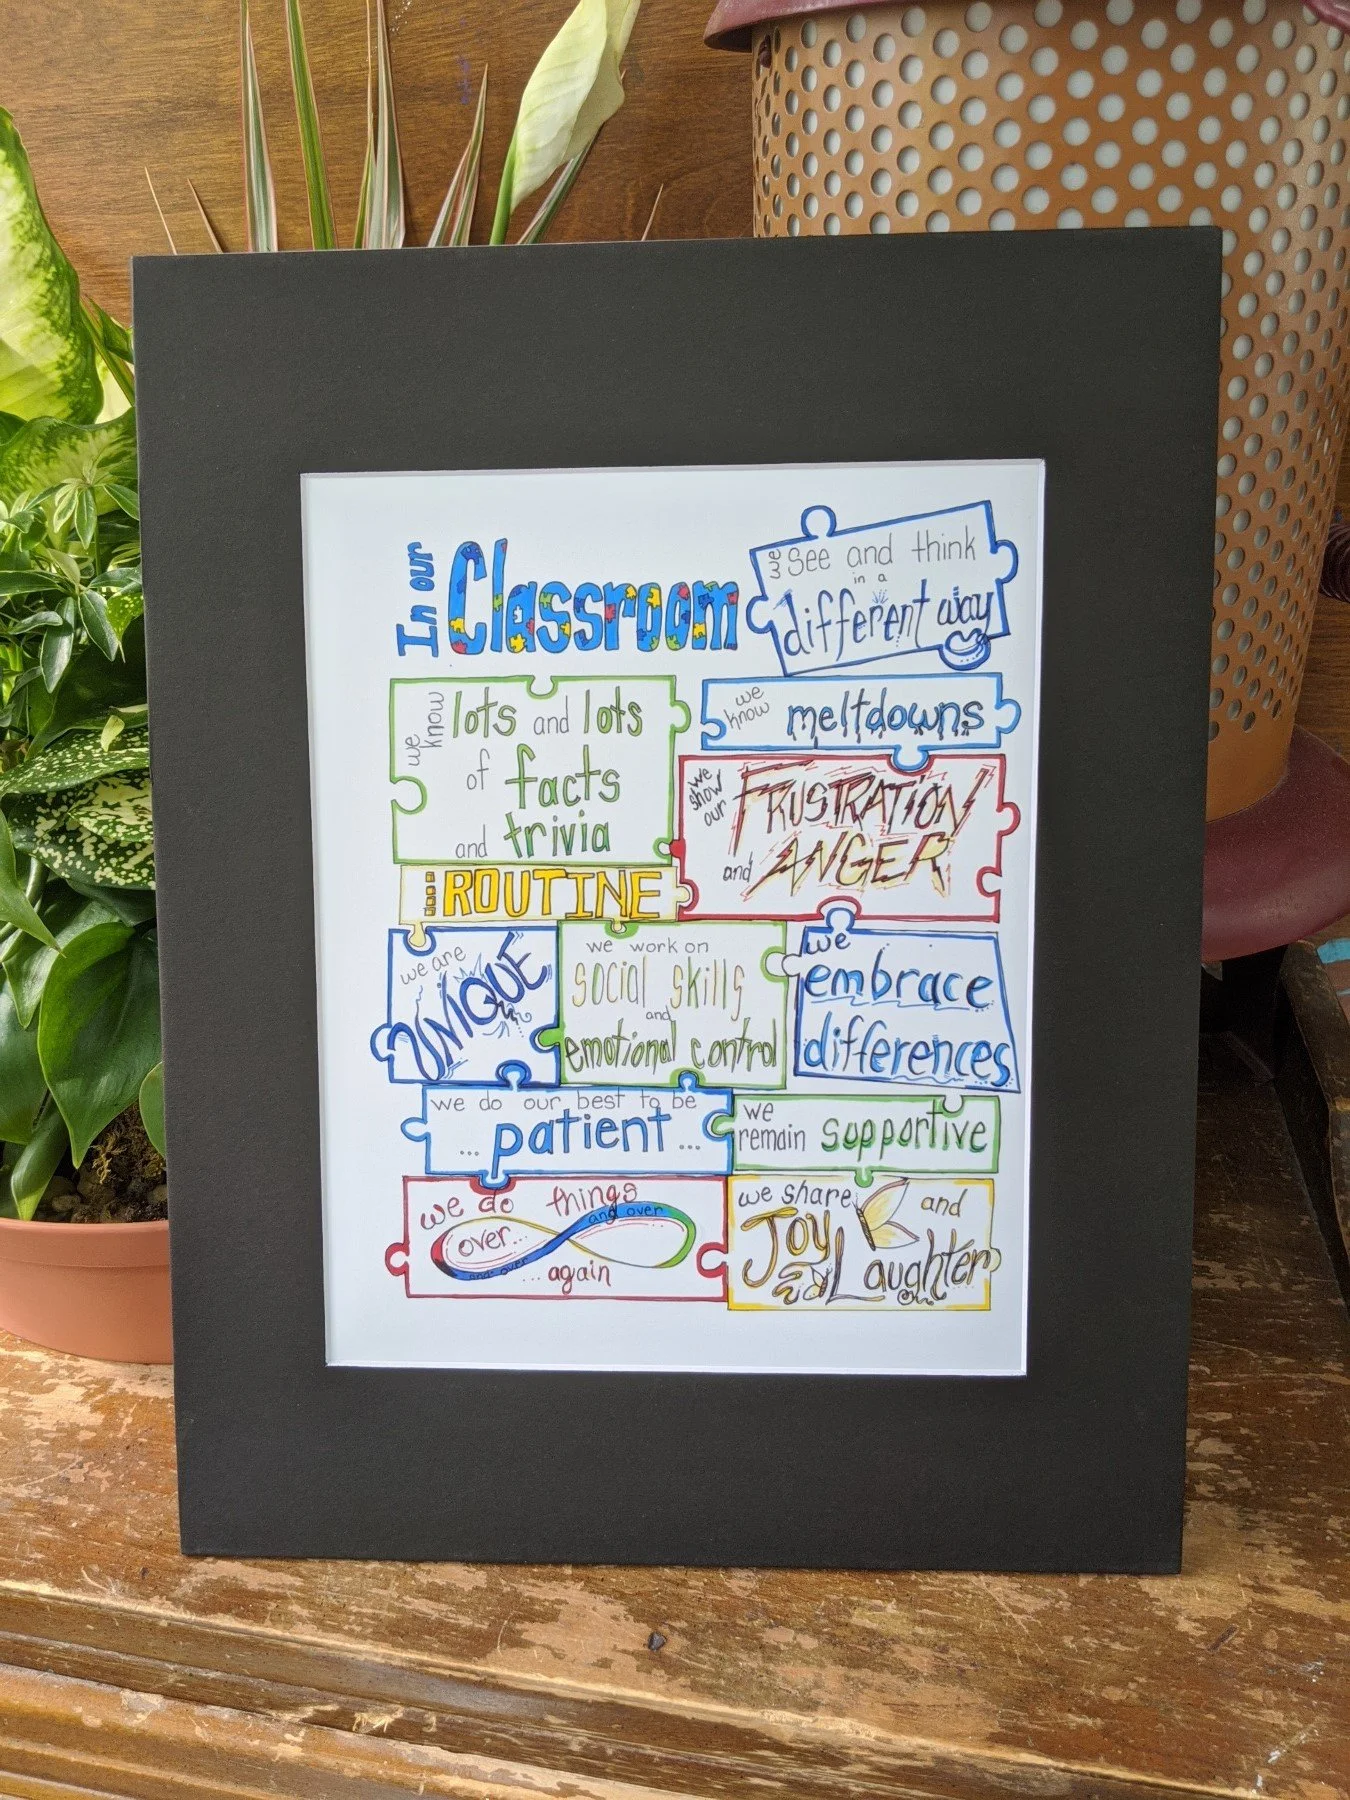 In our
Classroom
we See and think
in a
different way
we know
lots and lots
of facts
and trivia
we
know
meltdowns
we
show
our
FRUSTRATION
and ANGER
ROUTINE
we are
UNIQUE
we work on
social skills
and
emotional control
we
embrace
differences
we do our best to be
... patient ...
we
remain supportive
we do things
over...
and over
and over
... again
we share and
Joy
Laughter